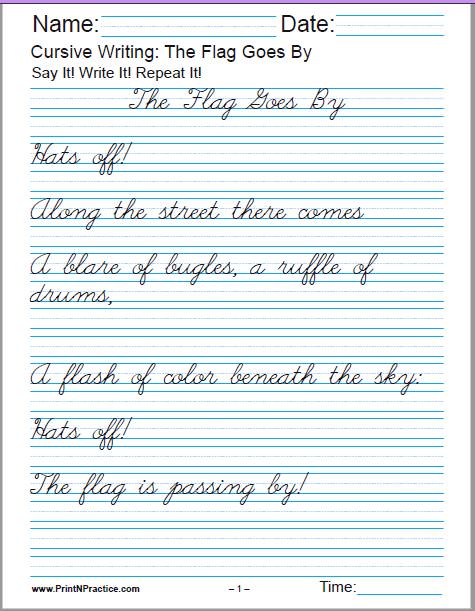 Name: Date:
Cursive Writing: The Flag Goes By
Say It! Write It! Repeat It!
The Flag Goes By
Hats off!
Along the street there comes
A blare of bugles, a ruffle of
drums,
A flash of color beneath the sky:
Hats off!
The flag is passing by!
www.PrintNPractice.com – 1 – Time: